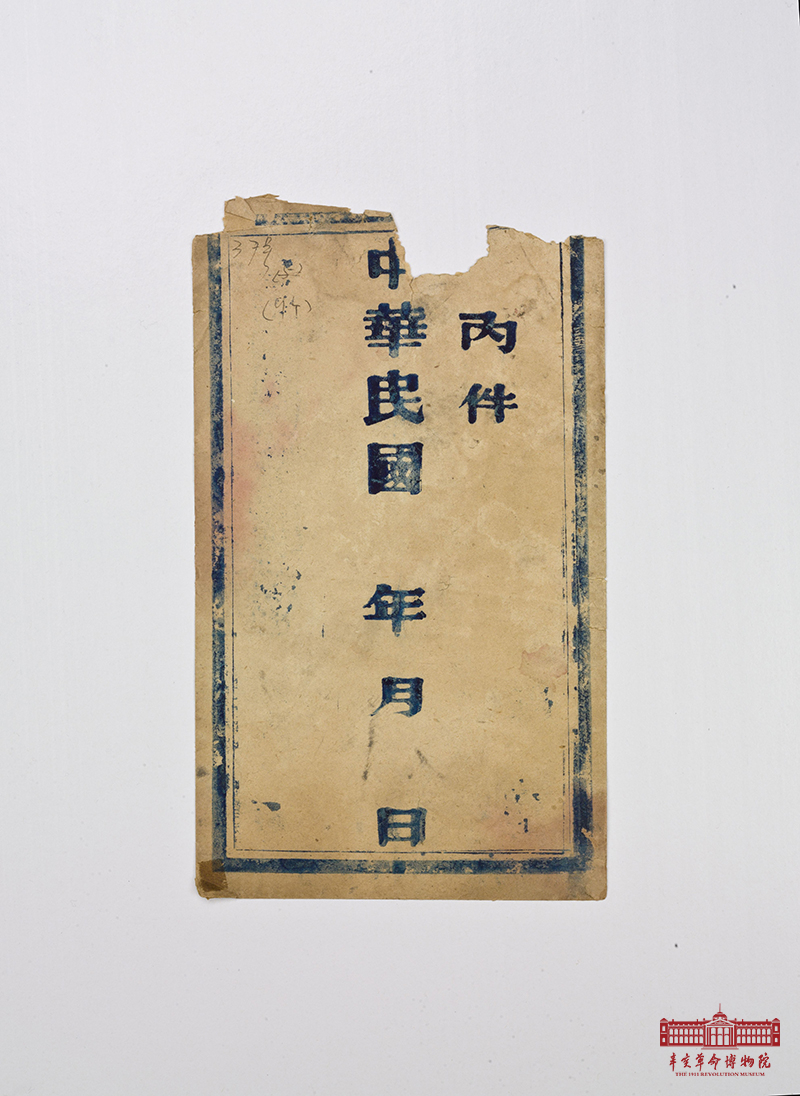 丙件
中華民國 年 月 日
辛亥革命博物院
THE 1911 REVOLUTION MUSEUM